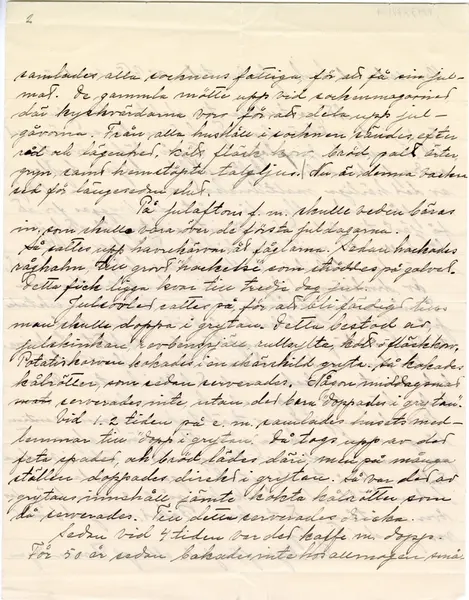 2
samlades alla socknens fattiga, för att få sin jul-
mat. De gamla mötte upp vid sockenmagasinet
där kyrkvärdarna voro för att dela upp jul-
gåvorna. Från alla hushåll i socknen sändes, efter
råd och lägenhet, kött fläsk korv bröd palt ärter,
gryn samt hemstöpta talgljus. Nu är denna vackra
sed för längesedan slut.
På julaftons f. m. skulle veden bäras
in, som skulle vara över de första juldagarna.
Så sattes upp havrekärvar åt fåglarna. Sedan hackades
råghalm till grov "hackelse" som ströddes på golvet.
Detta fick ligga kvar till tredje dag jul.
Julebordet sattes på för att bli färdigt tills
man skulle doppa i grytan. Detta bestod av
julskinkan revbensspjäll rullsylta, kött o fläskkorv.
Potatiskorven kokades i en särskild gryta. Så kokades
kålrötter, som sedan serverades. Någon middagsmat
serverades inte, utan det bara "doppades i grytan".
Vid 1.2 tiden på e. m. samlades husets med-
lemmar till dopp i grytan. Då togs upp av det
feta spadet, och bröd lades däri men på många
ställen doppades direkt i grytan. Så var det av
grytans innehåll jämte kokta kålrötter som
då serverades. Till detta serverades dricka.
Sedan vid 4 tiden var det kaffe m. dopp.
För 50 år sedan bakades inte hos allmogen små-